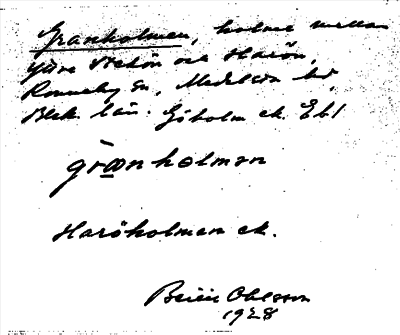 Granholmen, holme mellan
Yttre Stekön och Harön,
Ronneby sn, Medelsta hd,
Blek. län. Göholm ek. Ebl
grɑ̀nholmən
Haröholmen ek.
Bertil Ohlsson
1928